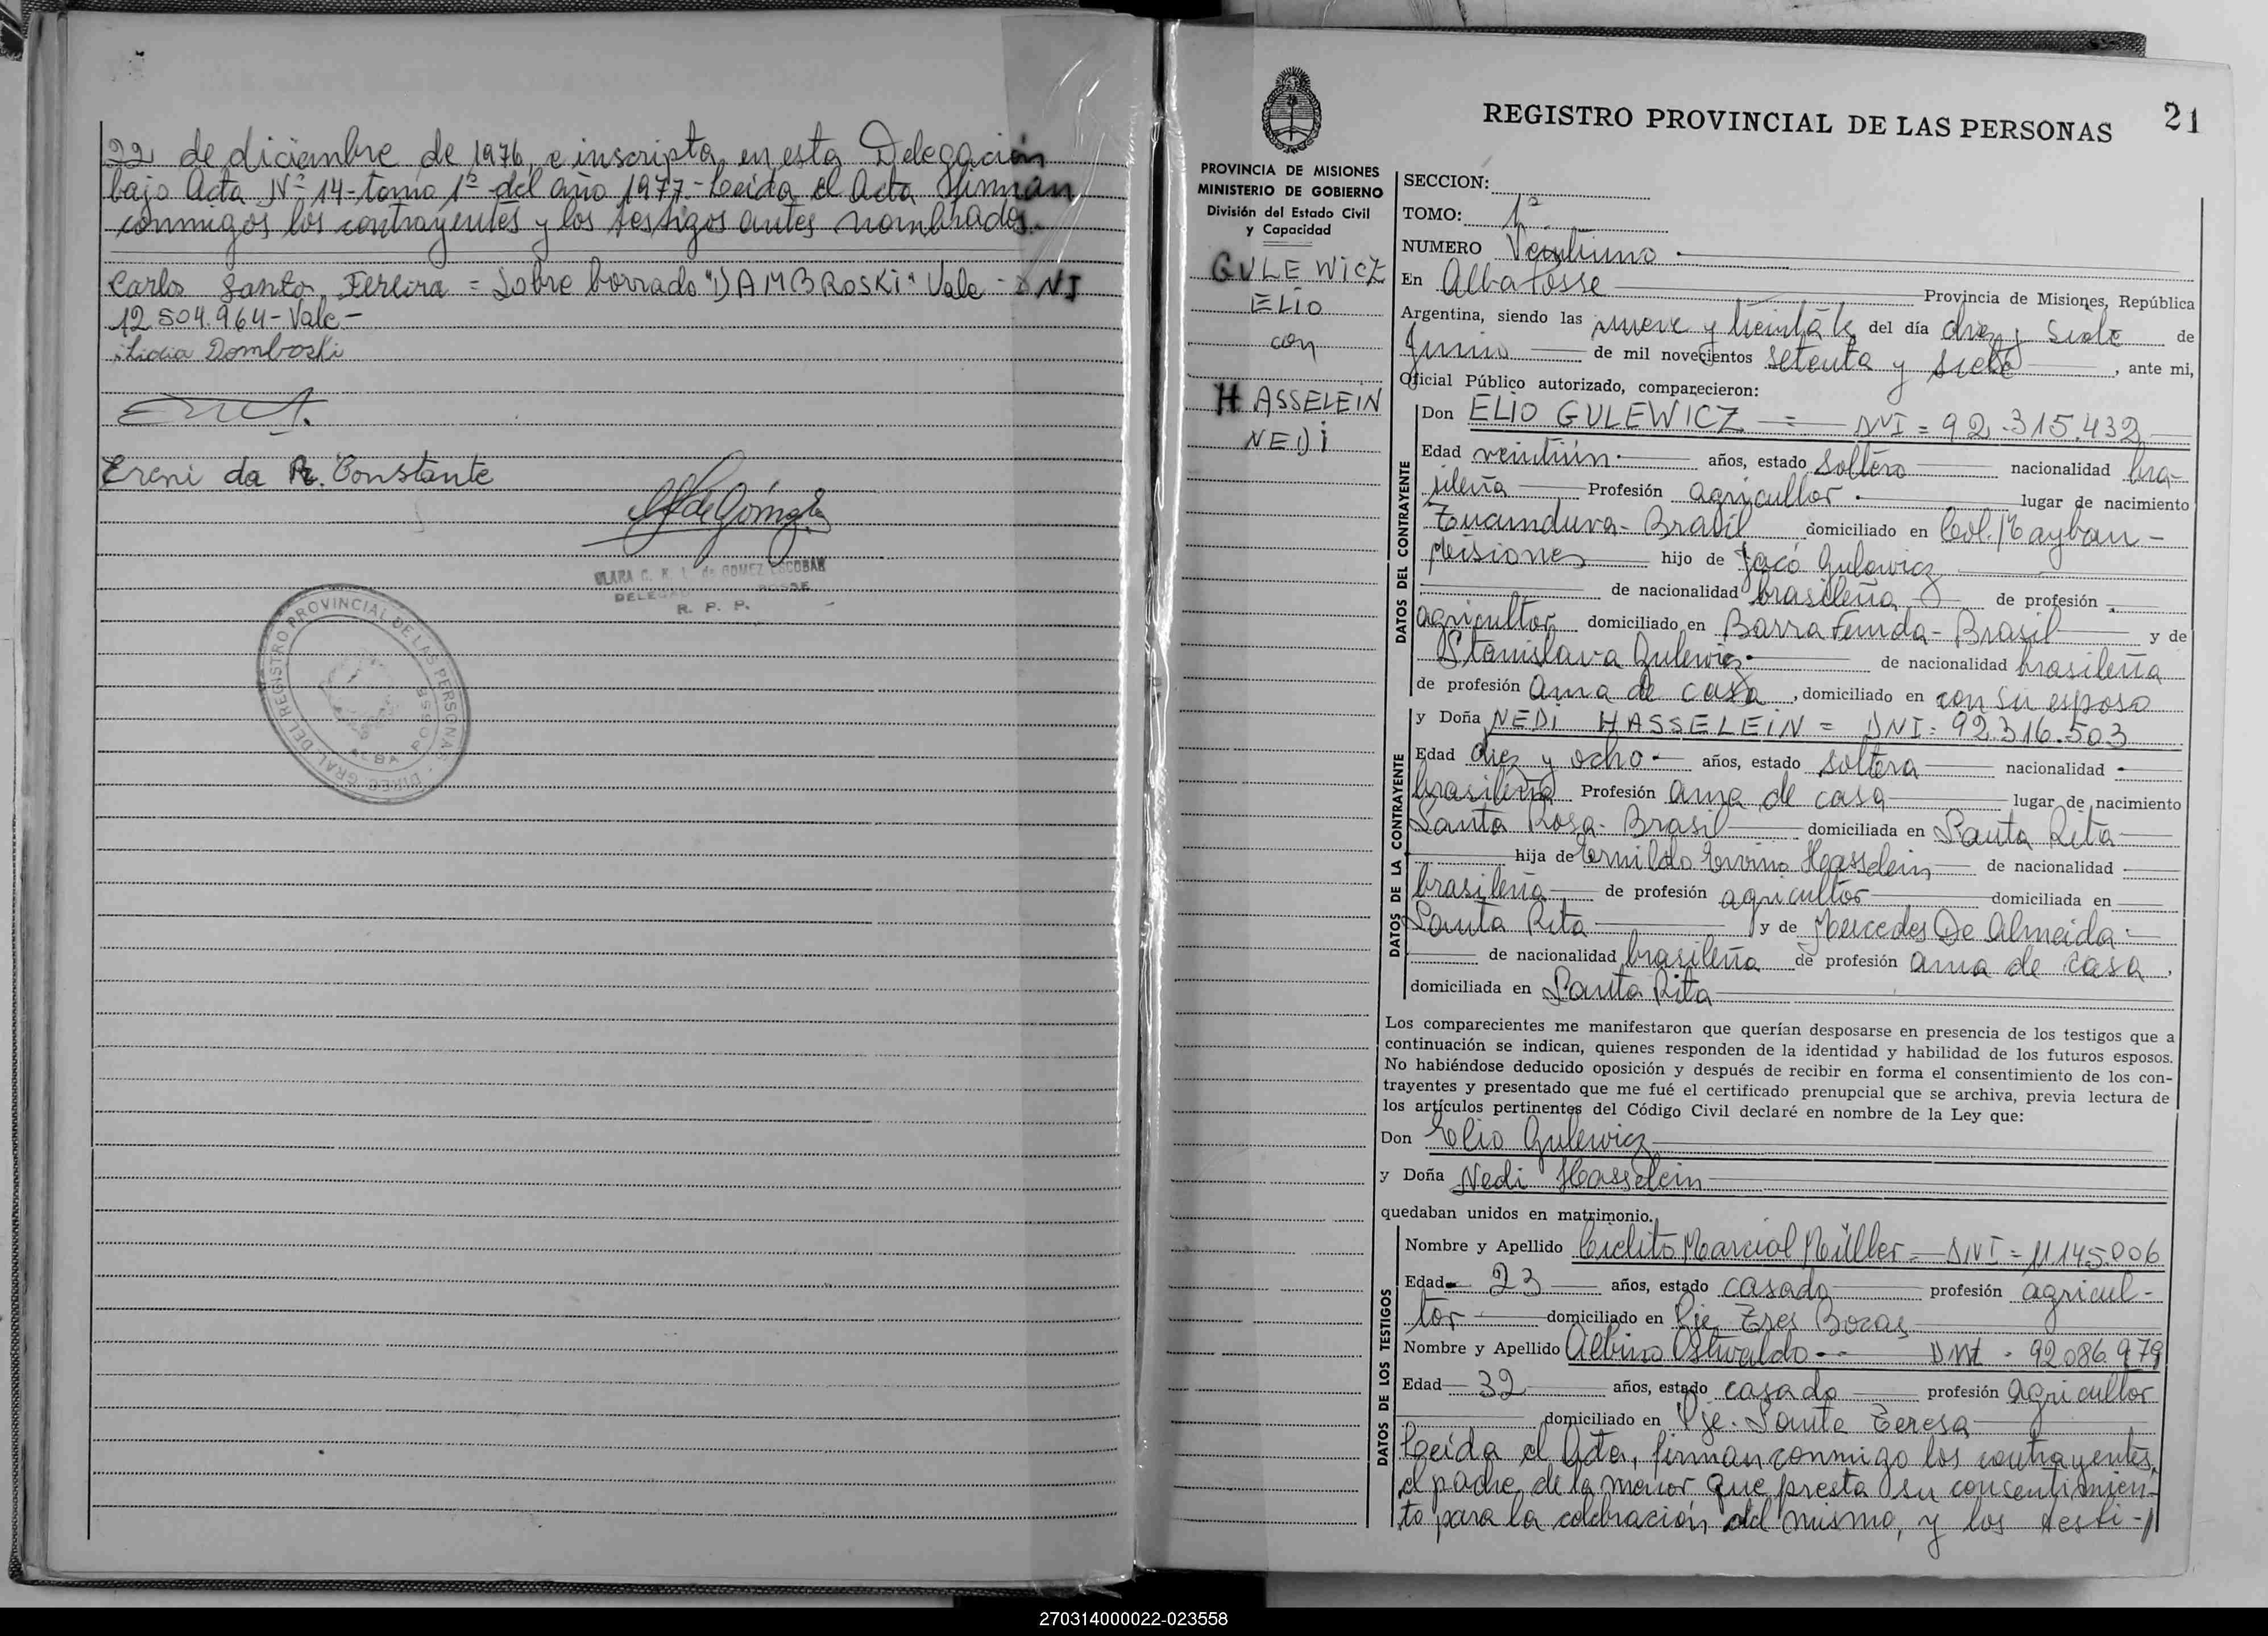 22 de diciembre de 1976, e inscripta en esta Delegación
bajo Acta Nº 14-tomo 1º del año 1977.- Leída el Acta firman
conmigos los contrayentes y los testigos antes nombrados.-
Carlos Santo Fereira = Sobre borrado "DAMBROSKI" Vale - DNI
12.504.964-Vale-
Lidia Domboski
Ereni da R. Constante
CLARA C. K. L. de GOMEZ ESCOBAR
DELEG POSSE
R. P. P.
DIREC. GRAL. DEL REGISTRO PROVINCIAL DE LAS PERSONAS
ALBA POSSE
21
REGISTRO PROVINCIAL DE LAS PERSONAS
PROVINCIA DE MISIONES
MINISTERIO DE GOBIERNO
División del Estado Civil
y Capacidad
GULEWICZ
ELIO
con
HASSELEIN
NEDI
SECCION:
TOMO: 1º
NUMERO Veintiuno
En Alba Posse Provincia de Misiones, República
Argentina, siendo las nueve y treinta hs del día diez y siete de
Junio de mil novecientos setenta y siete, ante mi,
Oficial Público autorizado, comparecieron:
DATOS DEL CONTRAYENTE
Don ELIO GULEWICZ = DNI = 92.315.432
Edad veintiún años, estado soltero nacionalidad bra-
sileña Profesión agricultor lugar de nacimiento
Tucunduva - Brasil domiciliado en Col. Mayban -
Misiones hijo de Jacó Gulewicz
de nacionalidad brasileña de profesión
agricultor domiciliado en Barra Funda - Brasil y de
Stanislava Gulewicz de nacionalidad brasileña
de profesión ama de casa, domiciliado en con su esposo
DATOS DE LA CONTRAYENTE
y Doña NEDI HASSELEIN = DNI: 92.316.503
Edad diez y ocho años, estado soltera nacionalidad
brasileña Profesión ama de casa lugar de nacimiento
Santa Rosa - Brasil domiciliada en Santa Rita
hija de Ernildo Ervino Hasselein de nacionalidad
brasileña de profesión agricultor domiciliada en
Santa Rita y de Mercedes De Almeida
de nacionalidad brasileña de profesión ama de casa,
domiciliada en Santa Rita
Los comparecientes me manifestaron que querían desposarse en presencia de los testigos que a
continuación se indican, quienes responden de la identidad y habilidad de los futuros esposos.
No habiéndose deducido oposición y después de recibir en forma el consentimiento de los con-
trayentes y presentado que me fué el certificado prenupcial que se archiva, previa lectura de
los artículos pertinentes del Código Civil declaré en nombre de la Ley que:
Don Elio Gulewicz
y Doña Nedi Hasselein
quedaban unidos en matrimonio.
DATOS DE LOS TESTIGOS
Nombre y Apellido Marcial Müller = DNI = 11.145.006
Edad 23 años, estado casado profesión agricul-
tor domiciliado en Pje Tres Bocas
Nombre y Apellido Albino Ostwaldo DNI - 92.086.979
Edad 32 años, estado casado profesión agricultor
domiciliado en Pje. Santa Teresa
Leída el Acta, firman conmigo los contrayentes,
el padre de la menor que presta su consentimien-
to para la celebración del mismo, y los testi-//
270314000022-023558